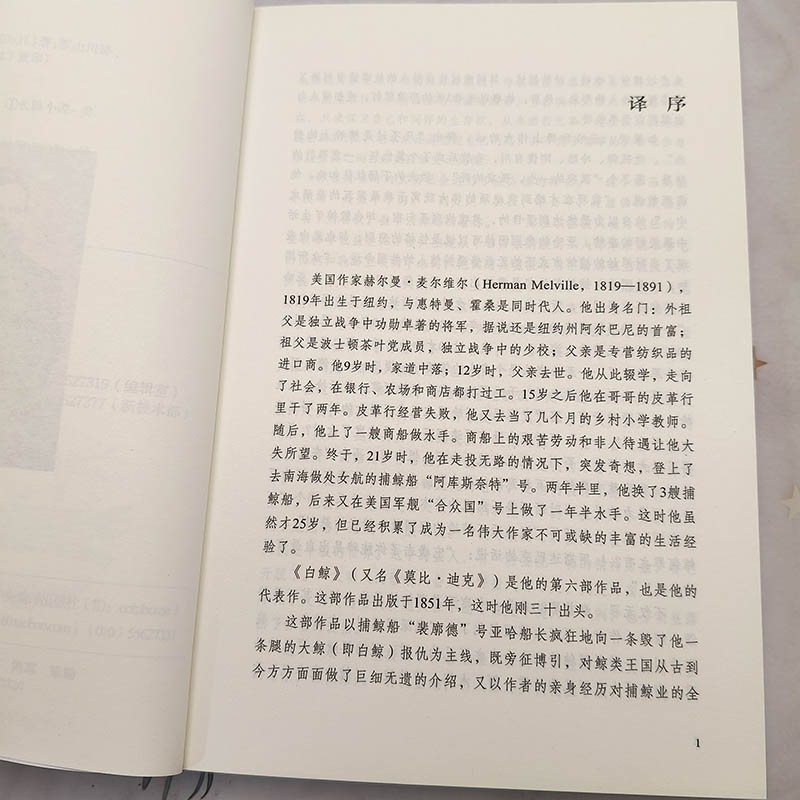 译 序
美国作家赫尔曼·麦尔维尔(Herman Melville, 1819—1891),
1819年出生于纽约,与惠特曼、霍桑是同时代人。他出身名门:外祖
父是独立战争中功勋卓著的将军,据说还是纽约州阿尔巴尼的首富;
祖父是波士顿茶叶党成员,独立战争中的少校;父亲是专营纺织品的
进口商。他9岁时,家道中落;12岁时,父亲去世。他从此辍学,走向
了社会,在银行、农场和商店都打过工。15岁之后他在哥哥的皮革行
里干了两年。皮革行经营失败,他又去当了几个月的乡村小学教师。
随后,他上了一艘商船做水手。商船上的艰苦劳动和非人待遇让他大
失所望。终于,21岁时,他在走投无路的情况下,突发奇想,登上了
去南海做处女航的捕鲸船“阿库斯奈特”号。两年半里,他换了3艘捕
鲸船,后来又在美国军舰“合众国”号上做了一年半水手。这时他虽
然才25岁,但已经积累了成为一名伟大作家不可或缺的丰富的生活经
验了。
《白鲸》(又名《莫比·迪克》)是他的第六部作品,也是他的
代表作。这部作品出版于1851年,这时他刚三十出头。
这部作品以捕鲸船“裴廓德”号亚哈船长疯狂地向一条毁了他一
条腿的大鲸(即白鲸)报仇为主线,既旁征博引,对鲸类王国从古到
今方方面面做了巨细无遗的介绍,又以作者的亲身经历对捕鲸业的全
1